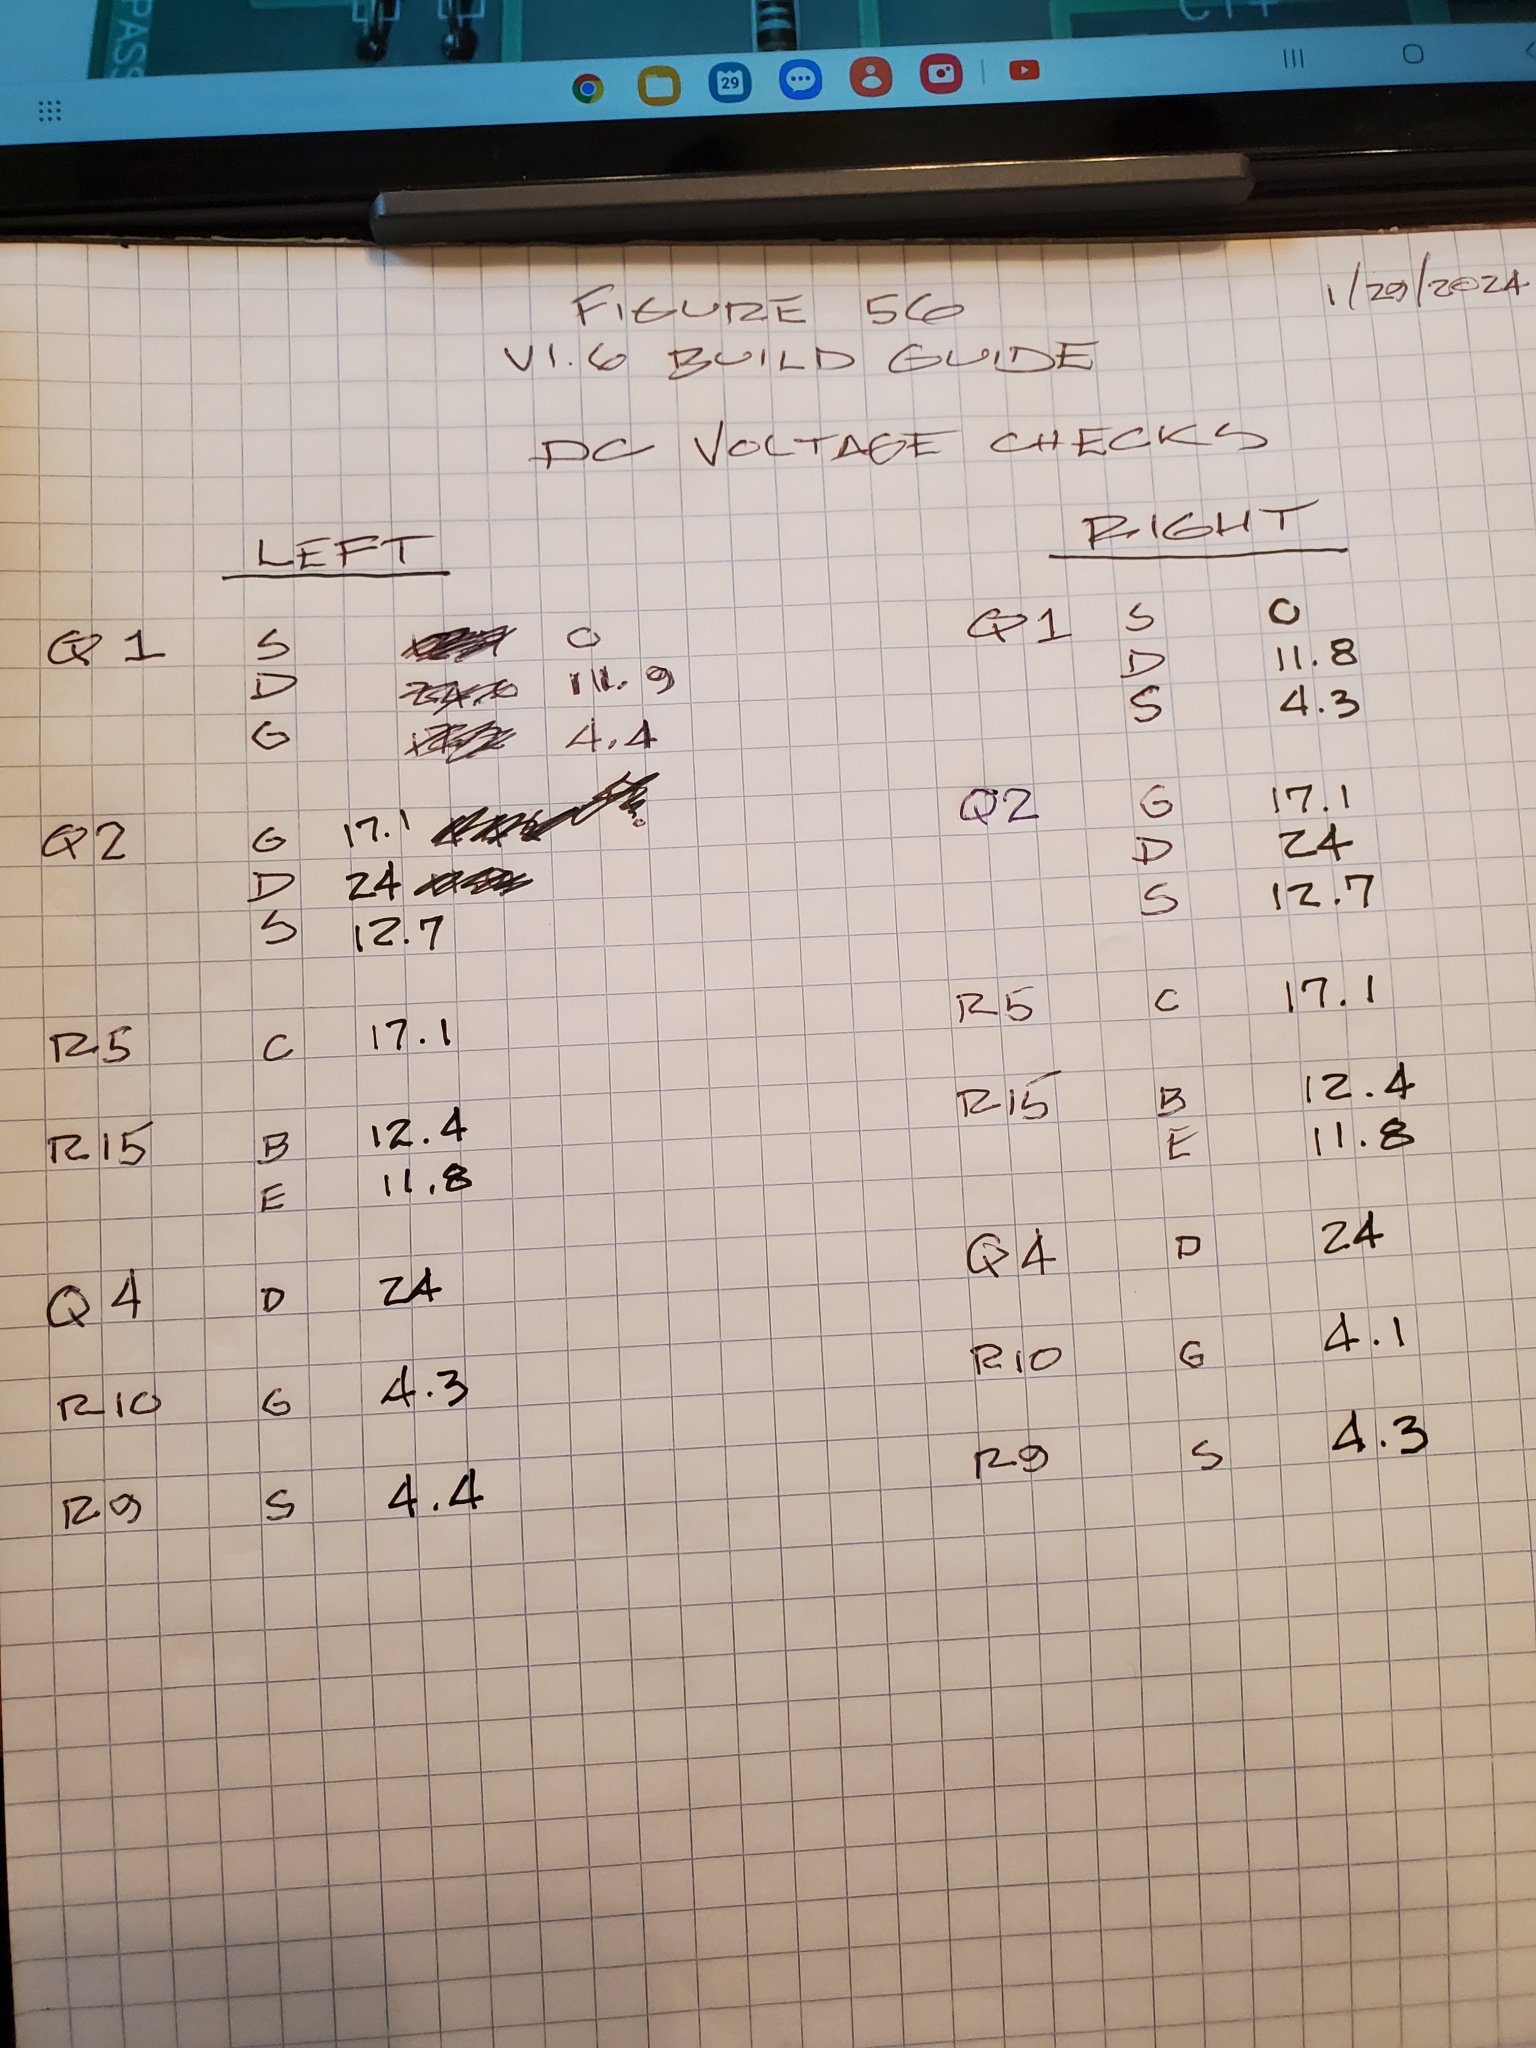 PASS
29
FIGURE 56
1/29/2024
V1.6 BUILD GUIDE
DC VOLTAGE CHECKS
LEFT
Q1 S 0
D 11.9
G 4.4
Q2 G 17.1
D 24
S 12.7
R5 C 17.1
R15 B 12.4
E 11.8
Q4 D 24
R10 G 4.3
R9 S 4.4
RIGHT
Q1 S 0
D 11.8
S 4.3
Q2 G 17.1
D 24
S 12.7
R5 C 17.1
R15 B 12.4
E 11.8
Q4 D 24
R10 G 4.1
R9 S 4.3